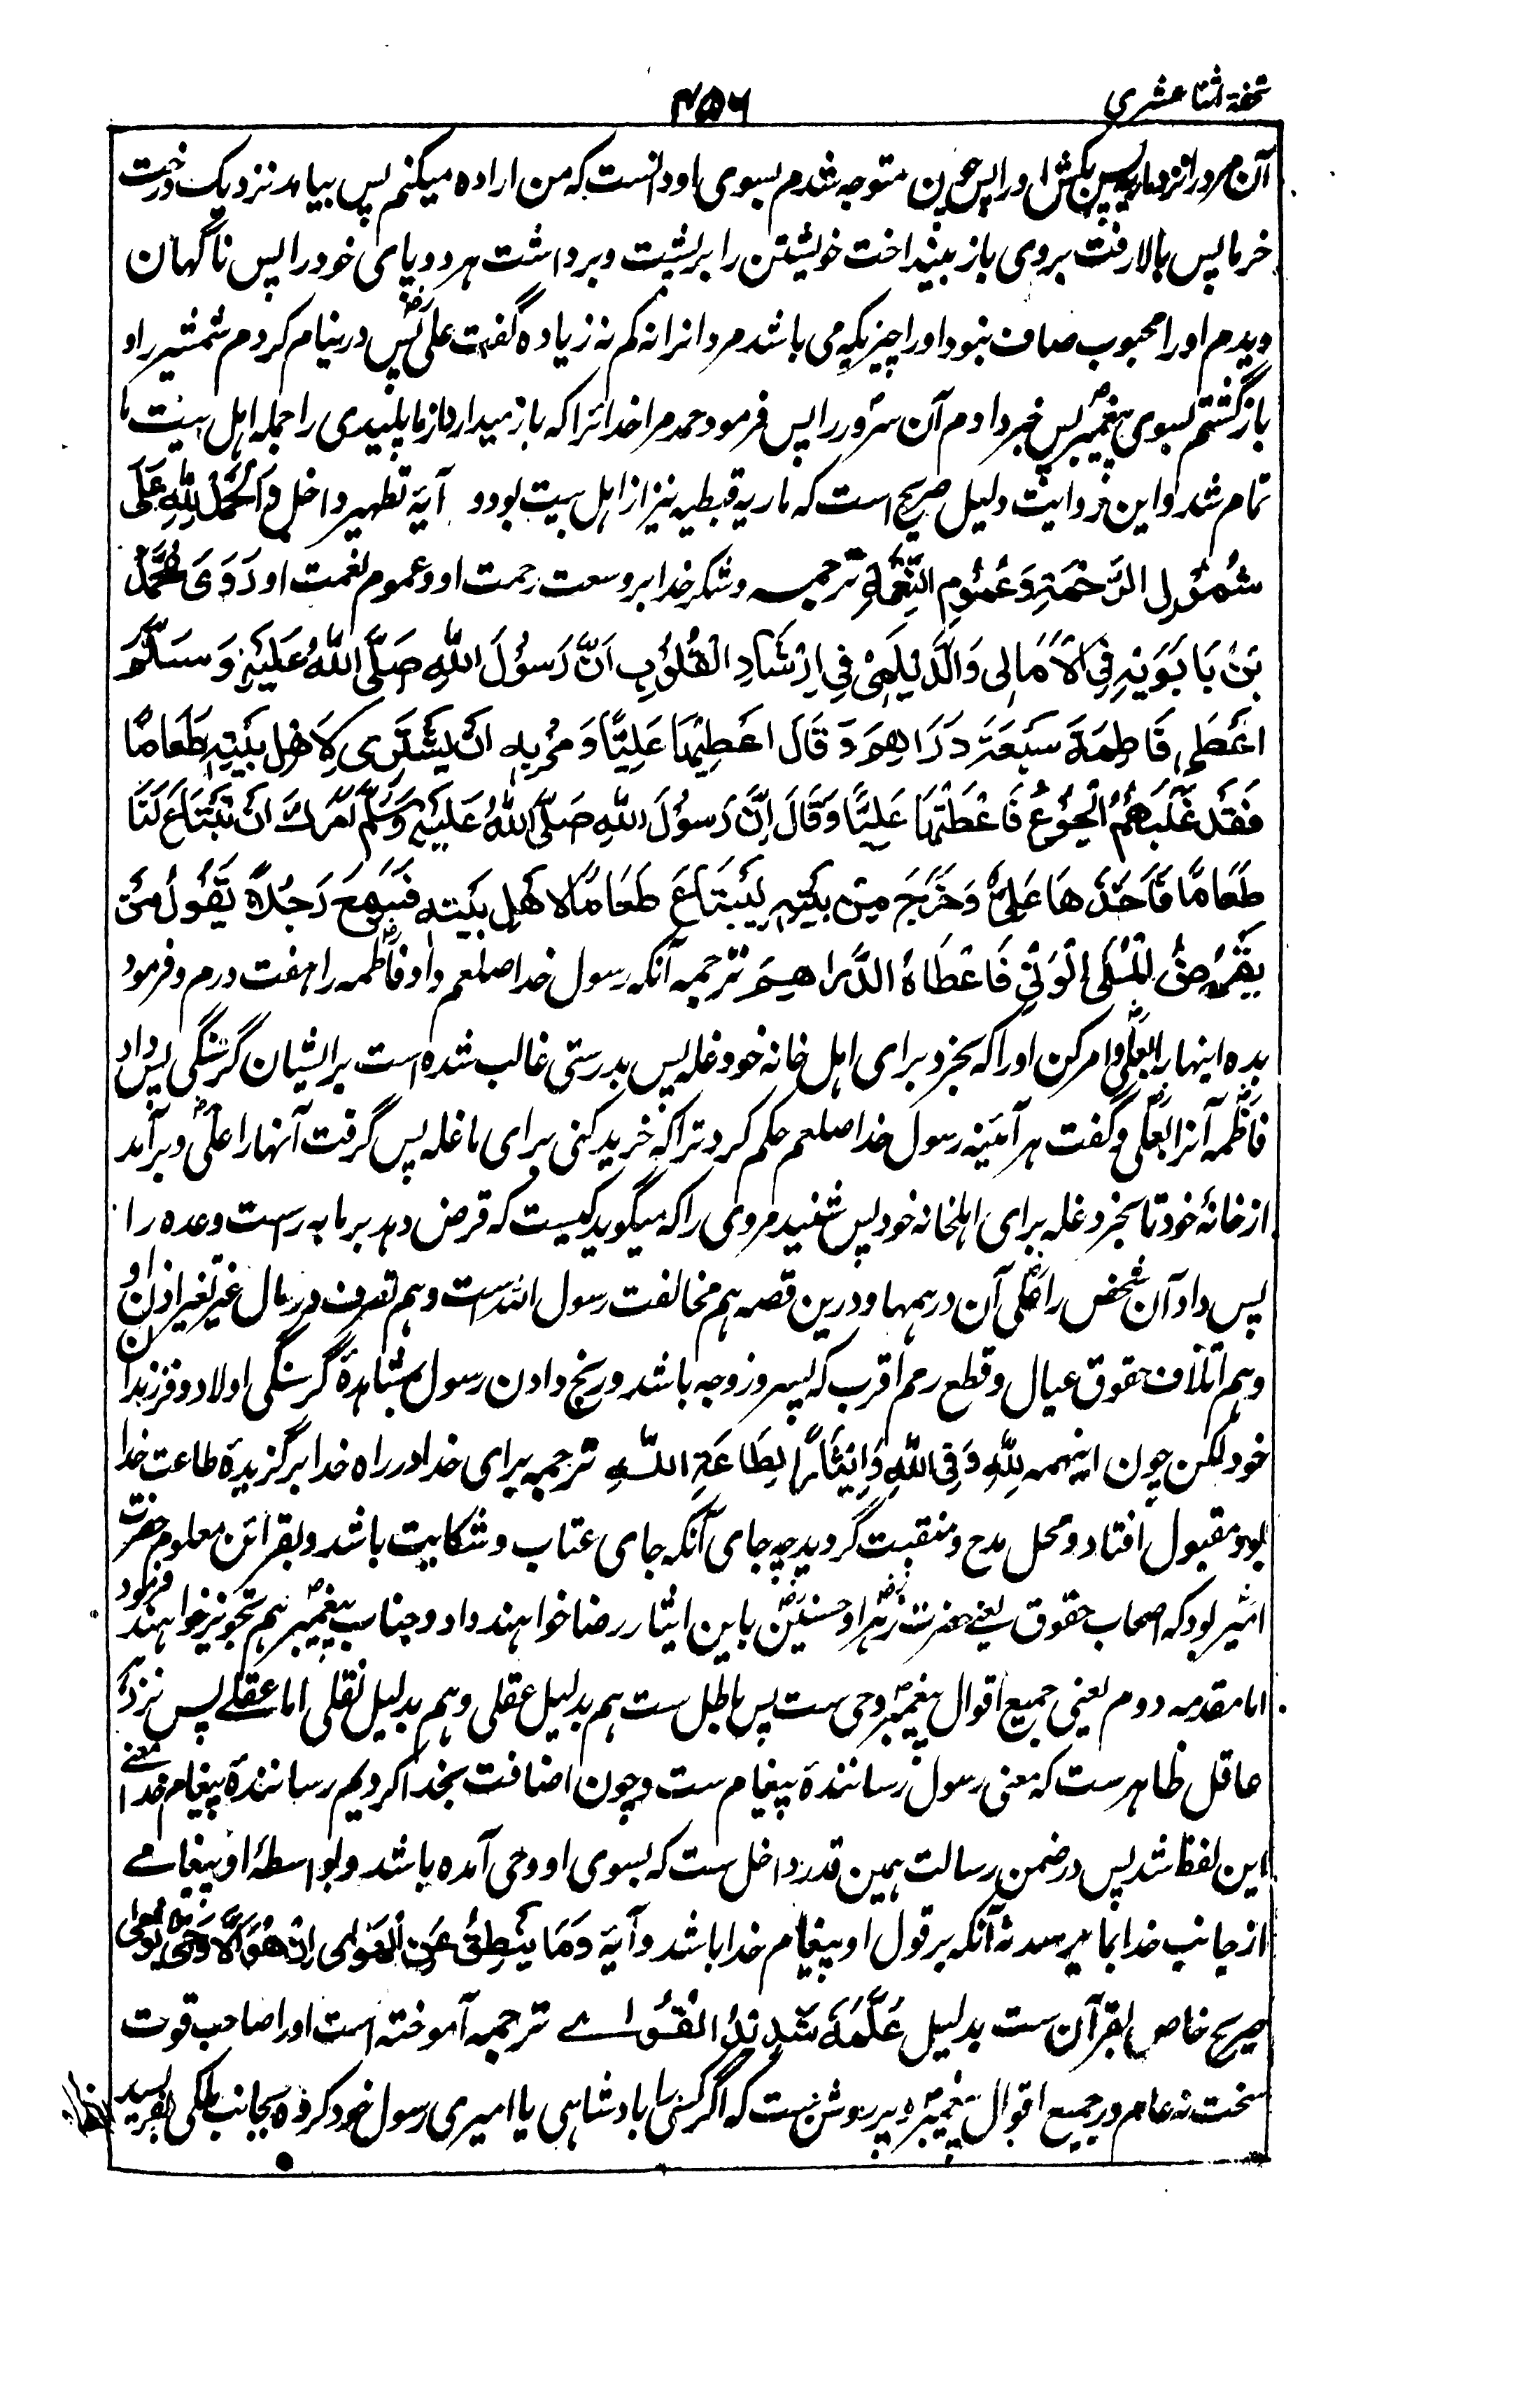 تحفۂ اثنا عشری
۴۵۶
آن مرد را نزد ماریه پس بکش او را پس چون متوجه شدم بسوی او دانست که من اراده میکنم پس بیامد نزدیک درخت
خرما پس بالا رفت بروی باز بینداخت خویشتن را بر پشت و برداشت هر دو پای خود را پس ناگهان
دیدم او را محبوب صاف نبود او را چیزیکه می باشد مردانرا نه کم نه زیاده گفت علی پس در نیام کردم شمشیر را و
باز گشتم بسوی پیغمبر پس خبر دادم آن سرور را پس فرمود حمد مر خدائرا که باز میدارد از ما پلیدی را جمله اهل بیت ما
تمام شد و این روایت دلیل صریح است که ماریه قبطیه نیز از اهل بیت بود و آیۀ تطهیر داخل وَالْحَمْدُ لِلّٰهِ عَلَی
شُمُوْلِ الرَّحْمَةِ وَعُمُوْمِ النِّعْمَةِ ترجمه و شکر خدا بر وسعت رحمت او و عموم نعمت او رَوَی مُحَمَّدُ
بْنُ بَابَوَیْهِ فِی الْاَمَالِی وَالدَّیْلَمِیُّ فِی اِرْشَادِ الْقُلُوْبِ اَنَّ رَسُوْلَ اللّٰهِ صَلَّی اللّٰهُ عَلَیْهِ وَسَلَّمَ
اَعْطٰی فَاطِمَةَ سَبْعَةَ دَرَاهِمَ وَقَالَ اَعْطِیْهَا عَلِیًّا وَمُرِیْهِ اَنْ یَشْتَرِیَ لِاَهْلِ بَیْتِهٖ طَعَامًا
فَقَدْ غَلَبَهُمُ الْجُوْعُ فَاَعْطَتْهَا عَلِیًّا وَقَالَ اِنَّ رَسُوْلَ اللّٰهِ صَلَّی اللّٰهُ عَلَیْهِ وَسَلَّمَ اَمَرَكَ اَنْ تَبْتَاعَ لَنَا
طَعَامًا فَاَخَذَهَا عَلِیٌّ وَخَرَجَ مِنْ بَیْتِهٖ لِیَبْتَاعَ طَعَامًا لِاَهْلِ بَیْتِهٖ فَسَمِعَ رَجُلًا یَقُوْلُ مَنْ
یُقْرِضُ الْمَلِیَّ الْوَفِیَّ فَاَعْطَاهُ الدَّرَاهِمَ ترجمه آنکه رسول خدا صلعم داد فاطمه را هفت درم و فرمود
بده اینها را بعلی و امر کن او را که بخرد برای اهل خانه خود غله پس بدرستی غالب شده است بر ایشان گرسنگی پس داد
فاطمه آنرا بعلی و گفت هر آئینه رسول خدا صلعم حکم کرد ترا که خرید کنی برای ما غله پس گرفت آنها را علی و برآمد
از خانۂ خود تا بخرد غله برای اهلخانه خود پس شنید مردی را که میگوید کیست که قرض دهد بر مایه راست وعده را
پس داد آن شخص را علی آن درهمها و درین قصه هم مخالفت رسول الله است و هم تصرف در مال غیر بغیر اذن او
و هم اتلاف حقوق عیال و قطع رحم اقرب که پسر و زوجه باشد و رنج دادن رسول بمشاهدۂ گرسنگی اولاد و فرزندان
خود لکن چون اینهمه لِلّٰهِ وَفِی اللّٰهِ وَاِیْثَارًا لِطَاعَةِ اللّٰهِ ترجمه برای خدا در راه خدا برگزیدۂ طاعت خدا
بود مقبول افتاد و محل مدح و منقبت گردید چه جای آنکه جای عتاب و شکایت باشد و بقرائن معلوم حضرت
امیر بود که اصحاب حقوق یعنے حضرت زهرا و حسنین باین ایثار رضا خواهند داد و جناب پیغمبر هم تجویز خواهند فرمود
اما مقدمه دوم یعنی جمیع اقوال پیغمبر وحی ست پس باطل ست هم بدلیل عقلی و هم بدلیل نقلی اما عقلے پس نزد
عاقل ظاهر ست که معنی رسول رسانندۂ پیغام ست و چون اضافت بخدا کردیم رسانندۂ پیغام خدا معنے
این لفظ شد پس در ضمن رسالت همین قدر داخل ست که بسوی او وحی آمده باشد و بواسطۂ او پیغامے
از جانب خدا بما برسد نه آنکه هر قول او پیغام خدا باشد و آیۀ وَمَا یَنْطِقُ عَنِ الْهَوٰی اِنْ هُوَ اِلَّا وَحْیٌ یُوْحٰی
صریح خاص بقرآن ست بدلیل عَلَّمَهٗ شَدِیْدُ الْقُوٰے ترجمه آموخته است او را صاحب قوت
سخت نه عام در جمیع اقوال پیغمبر و پر روشن ست که اگر کسی را بادشاهی یا امیری رسول خود کرده بجانب ملکی بفرستد